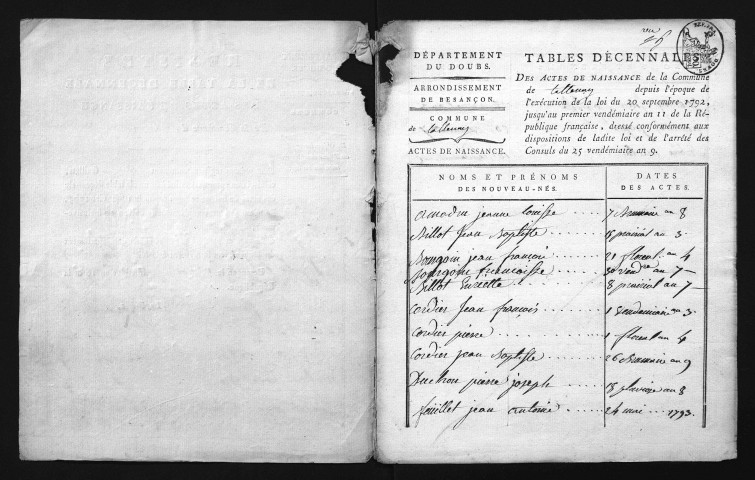 DÉPARTEMENT
DU DOUBS.
ARRONDISSEMENT
DE BESANÇON.
COMMUNE
de
ACTES DE NAISSANCE.
TABLES DÉCENNALES
DES ACTES DE NAISSANCE de la Commune
de depuis l'époque de
l'exécution de la loi du 20 septembre 1792,
jusqu'au premier vendémiaire an 11 de la Ré-
publique française, dressé conformément aux
dispositions de ladite loi et de l'arrêté des
Consuls du 25 vendémiaire an 9.
NOMS ET PRÉNOMS
DES NOUVEAU-NÉS.
DATES
DES ACTES.
jeanne louisse ..... 7 Brumaire an 8
Billot Jean Baptiste ..... prairial an 3.
Bourgoin jean françois .... floreal an 4
Bourgoin francoisse .... an 7
Billot ..... 8 prairial an 7
Cordier Jean françois .... 1 Vendemiaire an 3.
Cordier pierre ..... 1 floreal an 4
Cordier jean Baptiste ... 26 Brumaire an 9
pierre joseph ..... 18 an 8
jean antoine ..... 24 mai ... 1793.